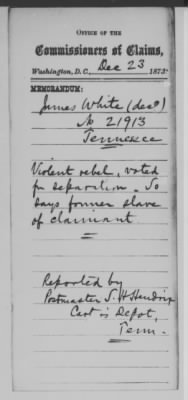 OFFICE OF THE
Commissioners of Claims,
Washington, D. C., Dec 23 1873.
MEMORANDUM:
James White (decd)
No 21913
Tennessee
Violent rebel, voted
for separation. So
says former slave
of claimant
Reported by
Postmaster S. H. Hendrix
Depot,
Tenn.